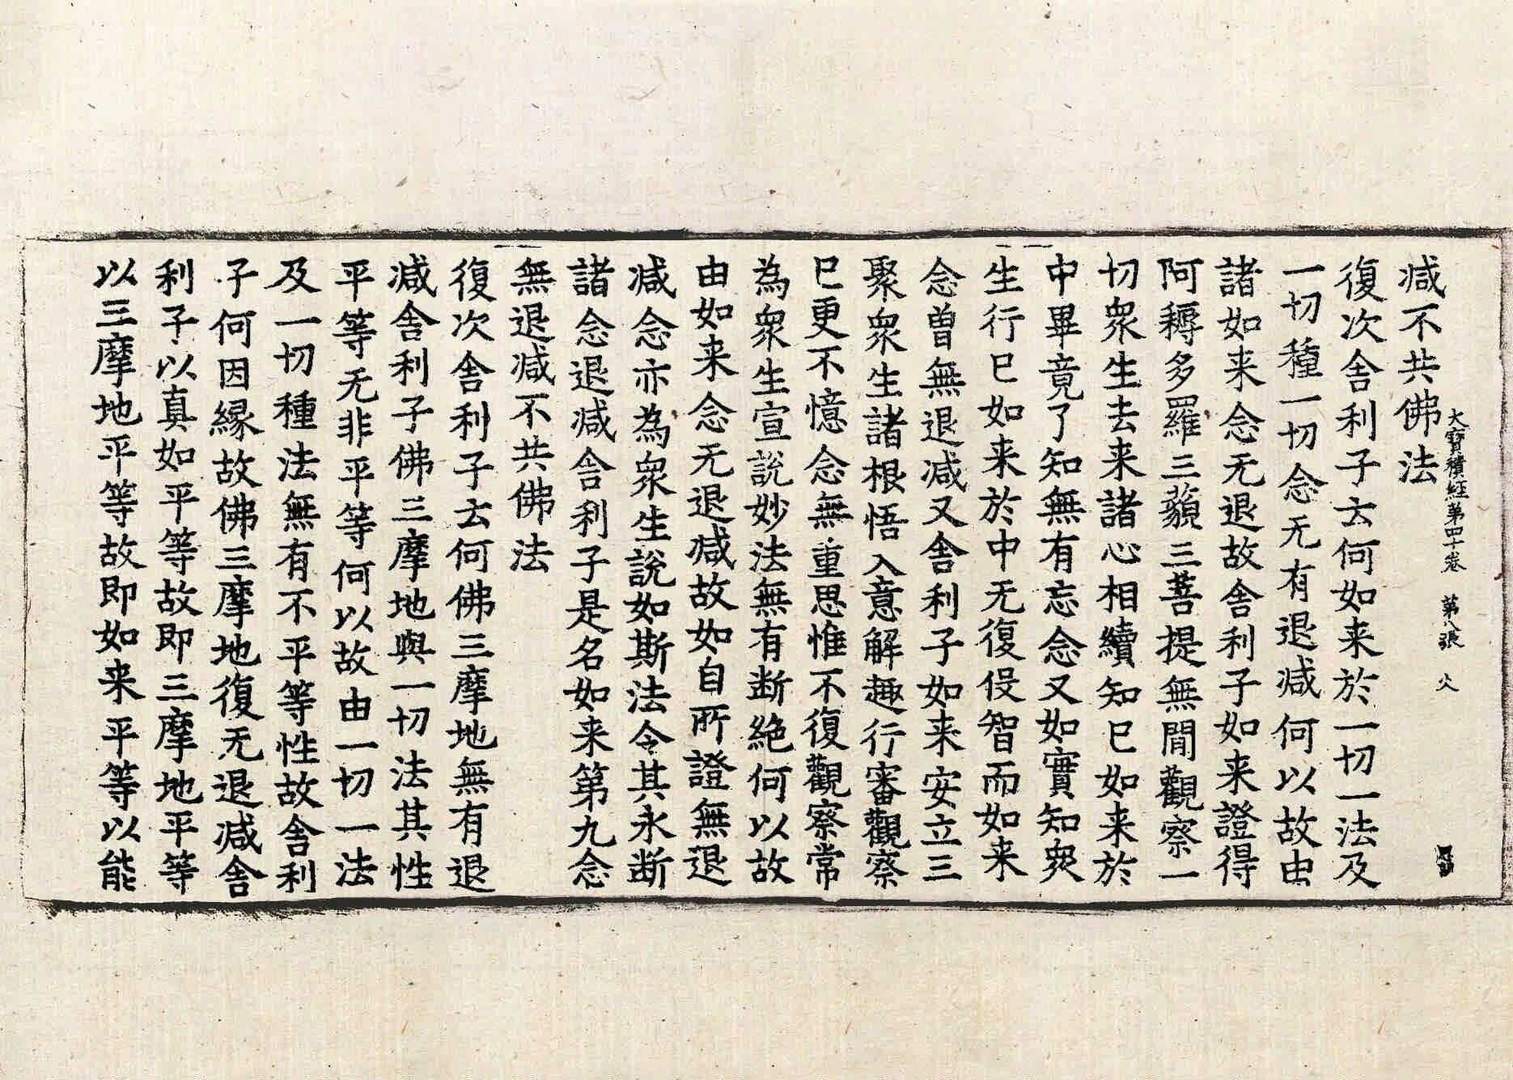 大寶積經第四十卷 第八張 火
减不共佛法
復次舍利子云何如来於一切一法及
一切種一切念无有退减何以故由
諸如来念无退故舍利子如来證得
阿耨多羅三藐三菩提無閒觀察一
切衆生去来諸心相續知已如来於
中畢竟了知無有忘念又如實知衆
生行已如来於中无復侵智而如来
念曽無退减又舍利子如来安立三
聚衆生諸根悟入意解趣行審觀察
已更不憶念無重思惟不復觀察常
為衆生宣說妙法無有断絶何以故
由如来念无退减故如自所證無退
减念亦為衆生說如斯法令其永断
諸念退减舍利子是名如来第九念
無退减不共佛法
復次舍利子云何佛三摩地無有退
减舍利子佛三摩地與一切法其性
平等无非平等何以故由一切一法
及一切種法無有不平等性故舍利
子何因縁故佛三摩地復无退减舍
利子以真如平等故即三摩地平等
以三摩地平等故即如来平等以能